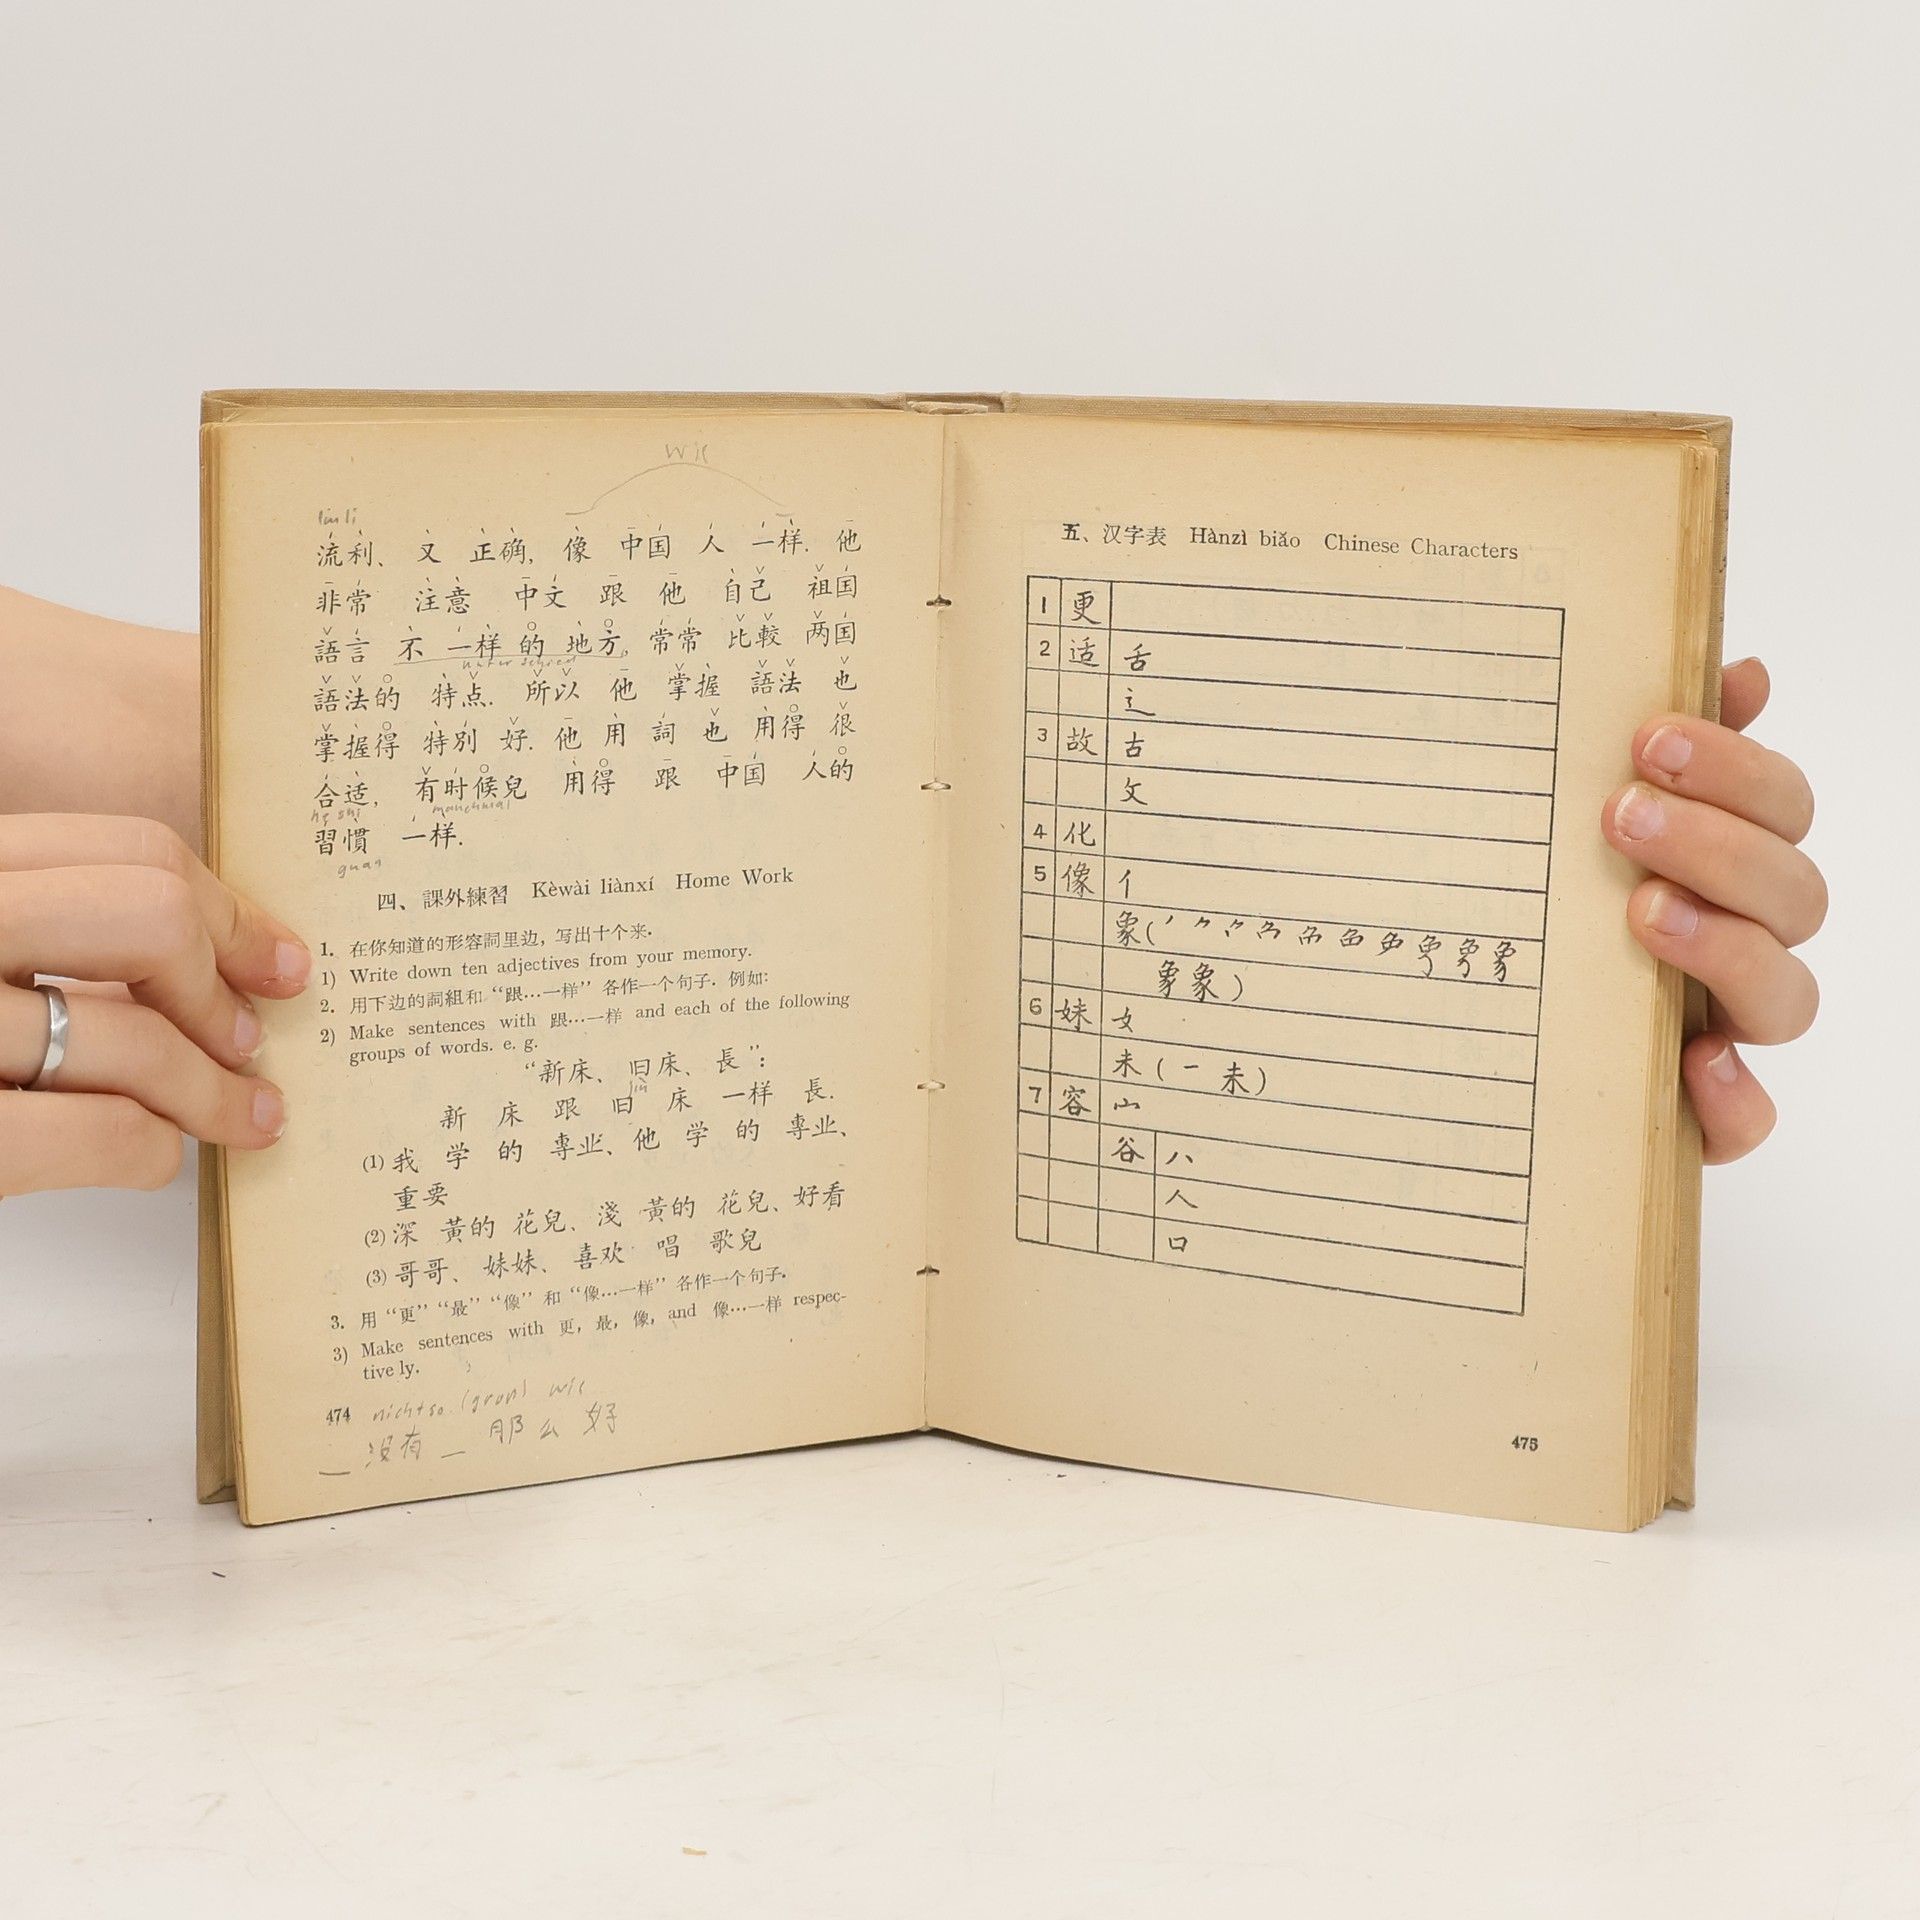 wie
liu li
流利、 又 正确, 像 中国 人 一样. 他
非常 注意 中文 跟 他 自己 祖国
語言 不 一样 的 地方, 常常 比較 两国
unterschied
語法的 特点. 所以 他 掌握 語法 也
掌握得 特別 好. 他 用 詞 也 用得 很
合适, 有时候兒 用得 跟 中国 人的
he shi manchmal
習慣 一样.
guan
四、 課外練習 Kèwài liànxí Home Work
1. 在你知道的形容詞里边, 写出十个来.
1) Write down ten adjectives from your memory.
2. 用下边的詞組和 “跟…一样” 各作一个句子. 例如:
2) Make sentences with 跟…一样 and each of the following
groups of words. e. g.
“新床、 旧床、 長”:
新 床 跟 旧 床 一样 長.
(1) 我 学 的 專业、 他 学 的 專业、
重要
(2) 深 黃的 花兒、 淺 黃的 花兒、 好看
(3) 哥哥、 妹妹、 喜欢 唱 歌兒
3. 用 “更” “最” “像” 和 “像…一样” 各作一个句子.
3) Make sentences with 更, 最, 像, and 像…一样 respec-
tive ly.
474 nicht so (gron) wie
— 没有 — 那么 好
五、 汉字表 Hànzì biǎo Chinese Characters
1 更
2 适 舌
辶
3 故 古
攵
4 化
5 像 亻
象(
象)
6 妹 女
未 ( 一 未 )
7 容 宀
谷 八
人
口
475